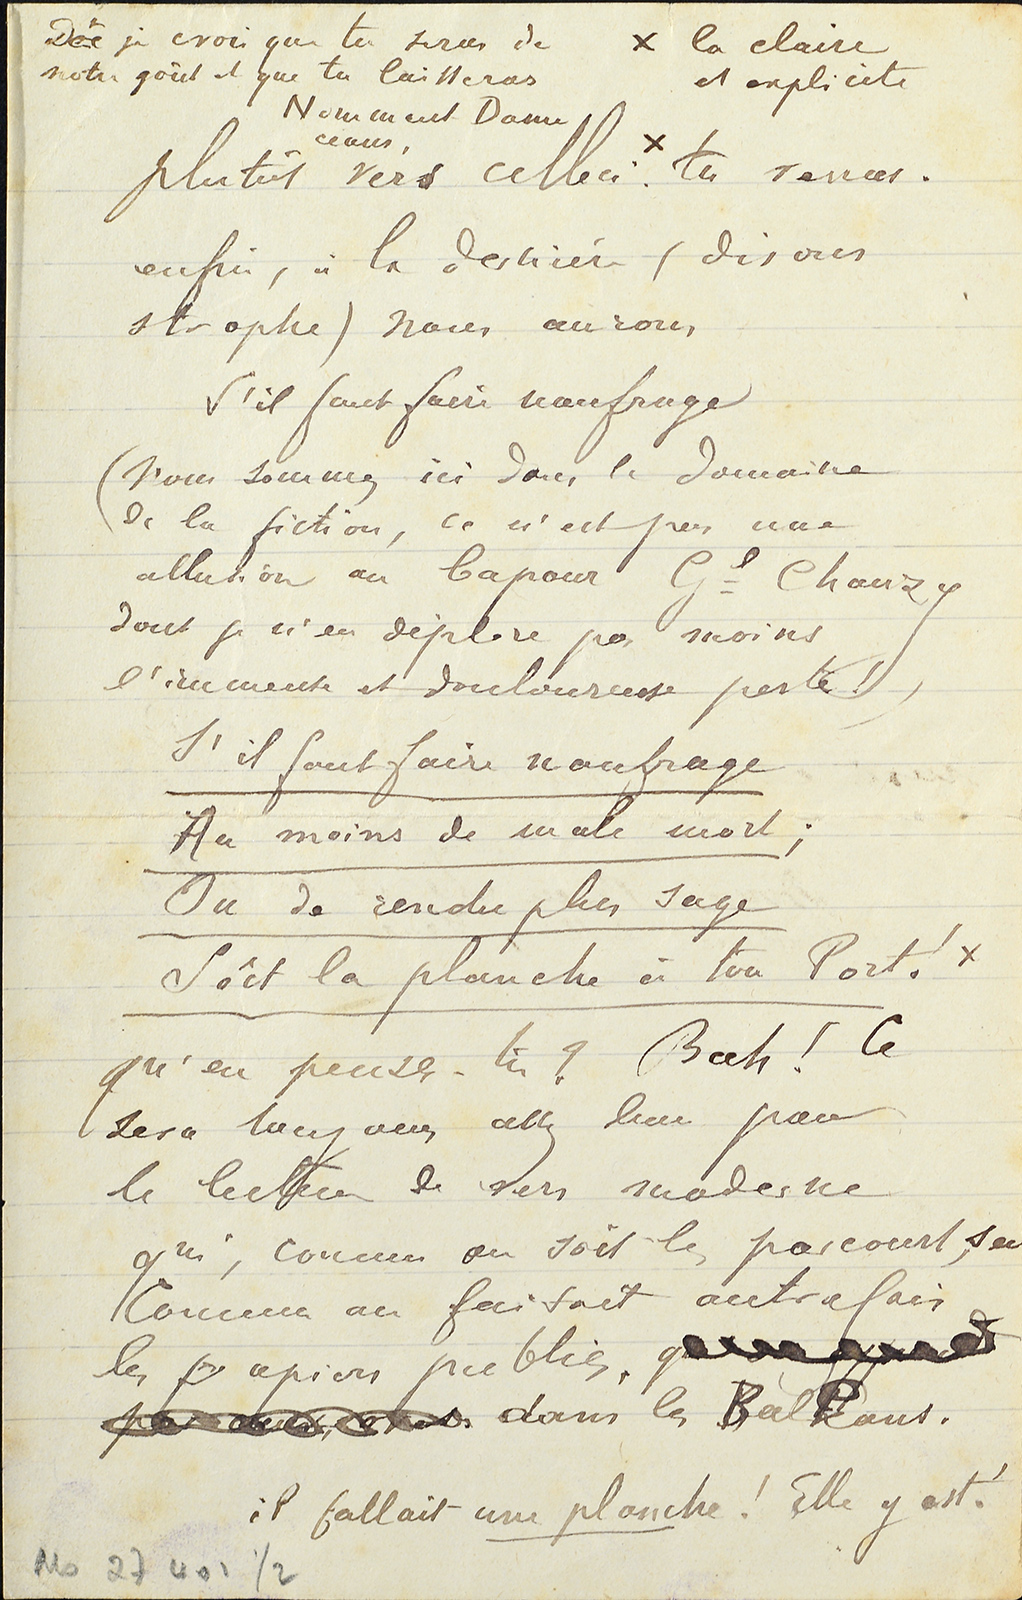 je crois que tu seras de
notre goût et que tu laisseras
x la claire
et explicite
plutôt vers celleci. x tu verras.
enfin, à la dernière (disons
strophe) nous aurons
S'il faut faire naufrage
(Nous sommes ici dans le domaine
de la fiction, ce n'est pas une
allusion au Vapeur Gal Chanzy
dont je n'en déplore pas moins
l'immense et douloureuse perte!)
S'il faut faire naufrage
Au moins de male mort;
Ou de rendu plus sage
Soit la planche à ton Port! x
qu'en penses-tu? Bah! Ce
sera toujours assez bon pour
le lecteur de vers moderne
qui, comme on soit les parcourt,
Comme on faisait autrefois
les papiers publics.
dans les Balkans.
il fallait une planche! Elle y est!
Ms 27 401 1/2